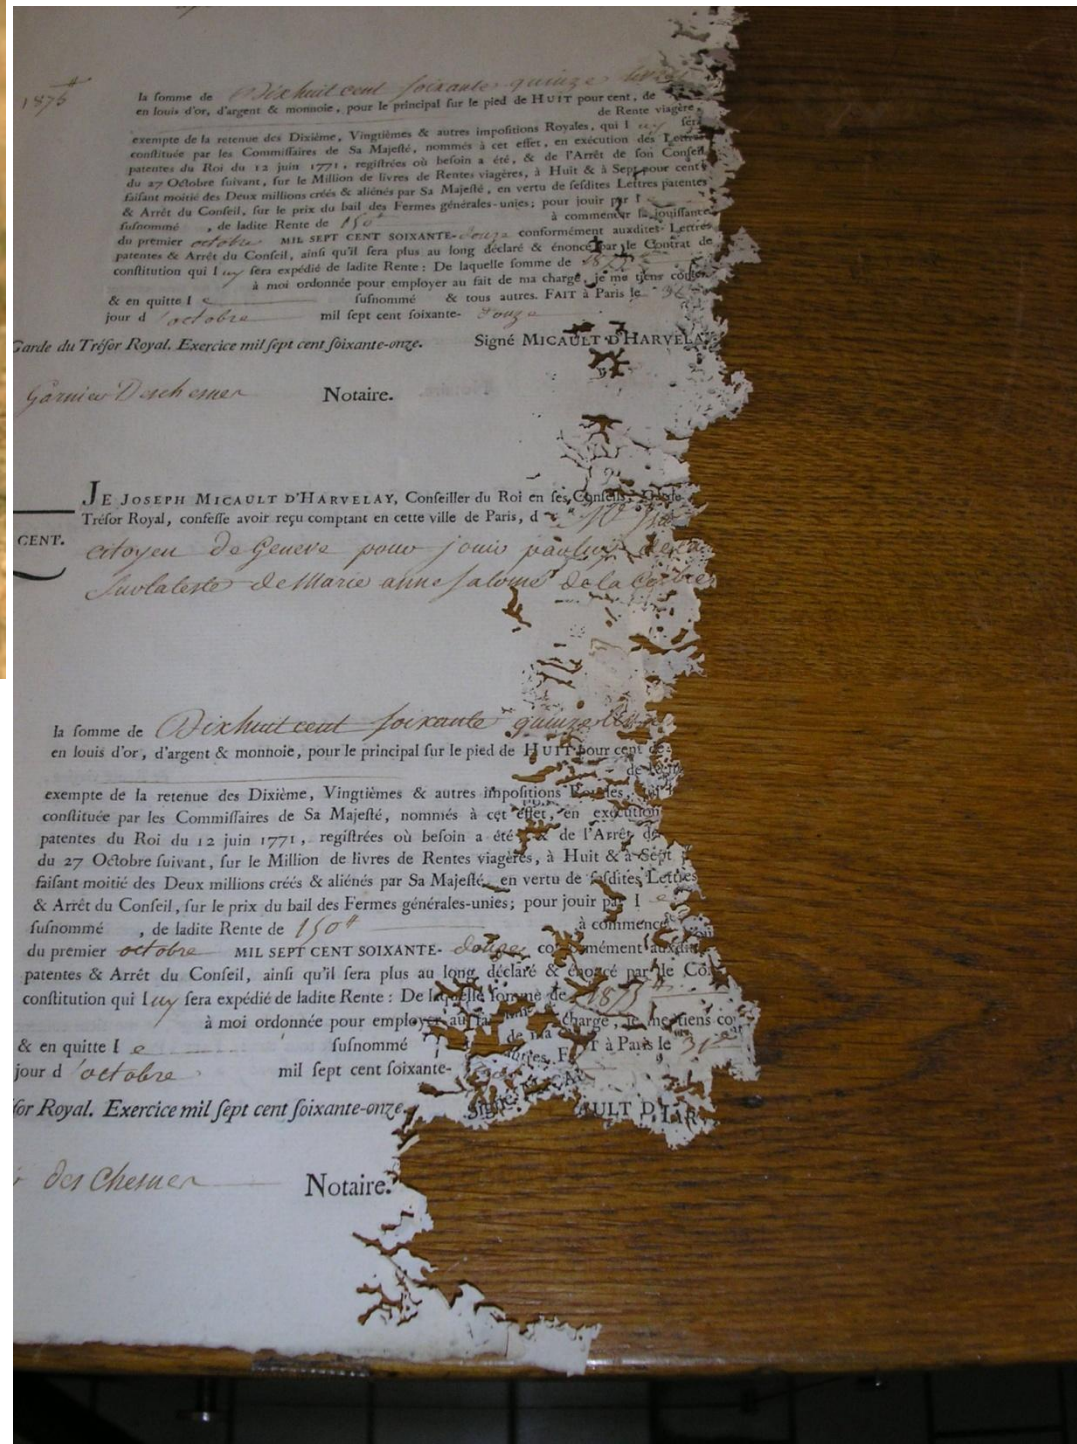 1875
la ſomme de Dixhuit cent ſoixante quinze livres
en louis d'or, d'argent & monnoie, pour le principal ſur le pied de HUIT pour cent, de
de Rente viagère,
exempte de la retenue des Dixième, Vingtièmes & autres impoſitions Royales, qui l uy ſera
conſtituée par les Commiſſaires de Sa Majeſté, nommés à cet effet, en exécution des Lettres
patentes du Roi du 12 juin 1771, regiſtrées où beſoin a été, & de l'Arrêt de ſon Conſeil
du 27 Octobre ſuivant, ſur le Million de livres de Rentes viagères, à Huit & à Sept pour cent,
faiſant moitié des Deux millions créés & aliénés par Sa Majeſté, en vertu de ſeſdites Lettres patentes
& Arrêt du Conſeil, ſur le prix du bail des Fermes générales-unies; pour jouir par l
ſuſnommé , de ladite Rente de 150ᵗᵗ à commencer ſa jouiſſance
du premier octobre MIL SEPT CENT SOIXANTE- douze conformément auxdites Lettres
patentes & Arrêt du Conſeil, ainſi qu'il ſera plus au long déclaré & énoncé par le Contrat de
conſtitution qui l uy ſera expédié de ladite Rente : De laquelle ſomme de 1875ᵗᵗ
à moi ordonnée pour employer au fait de ma charge, je me tiens content
& en quitte l e ſuſnommé & tous autres. FAIT à Paris le
jour d octobre mil ſept cent ſoixante- douze
Garde du Tréſor Royal. Exercice mil ſept cent ſoixante-onze. Signé MICAULT D'HARVELAY
Garnier Deschesnes Notaire.
JE JOSEPH MICAULT D'HARVELAY, Conſeiller du Roi en ſes Conſeils, Garde
Tréſor Royal, confeſſe avoir reçu comptant en cette ville de Paris, d
CENT.
citoyen de Geneve pour jouir par luy
Sur la teste de Marie anne Salomé de la
la ſomme de Dixhuit cent ſoixante quinze livres
en louis d'or, d'argent & monnoie, pour le principal ſur le pied de HUIT pour cent de
de
exempte de la retenue des Dixième, Vingtièmes & autres impoſitions Royales,
conſtituée par les Commiſſaires de Sa Majeſté, nommés à cet effet, en exécution
patentes du Roi du 12 juin 1771, regiſtrées où beſoin a été & de l'Arrêt de
du 27 Octobre ſuivant, ſur le Million de livres de Rentes viagères, à Huit & à Sept
faiſant moitié des Deux millions créés & aliénés par Sa Majeſté, en vertu de ſeſdites Lettres
& Arrêt du Conſeil, ſur le prix du bail des Fermes générales-unies; pour jouir par l
ſuſnommé , de ladite Rente de 150ᵗᵗ à commencer
du premier octobre MIL SEPT CENT SOIXANTE- douze conformément auxdites
patentes & Arrêt du Conſeil, ainſi qu'il ſera plus au long déclaré & énoncé par le Con
conſtitution qui l uy ſera expédié de ladite Rente : De laquelle ſomme de 1875ᵗᵗ
à moi ordonnée pour employer au fait de ma charge, je me tiens con
& en quitte l e ſuſnommé autres. FAIT à Paris le 31
jour d octobre mil ſept cent ſoixante-
ſor Royal. Exercice mil ſept cent ſoixante-onze. Signé AULT D'HAR
des Chesnes Notaire.